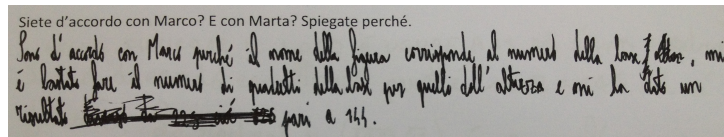 Siete d'accordo con Marco? E con Marta? Spiegate perché.
Sono d'accordo con Marco perché il nome della figura corrisponde al numero della base, mi
è bastato fare il numero di quadretti della base per quello dell'altezza e mi ha dato un
risultato pari a 144.